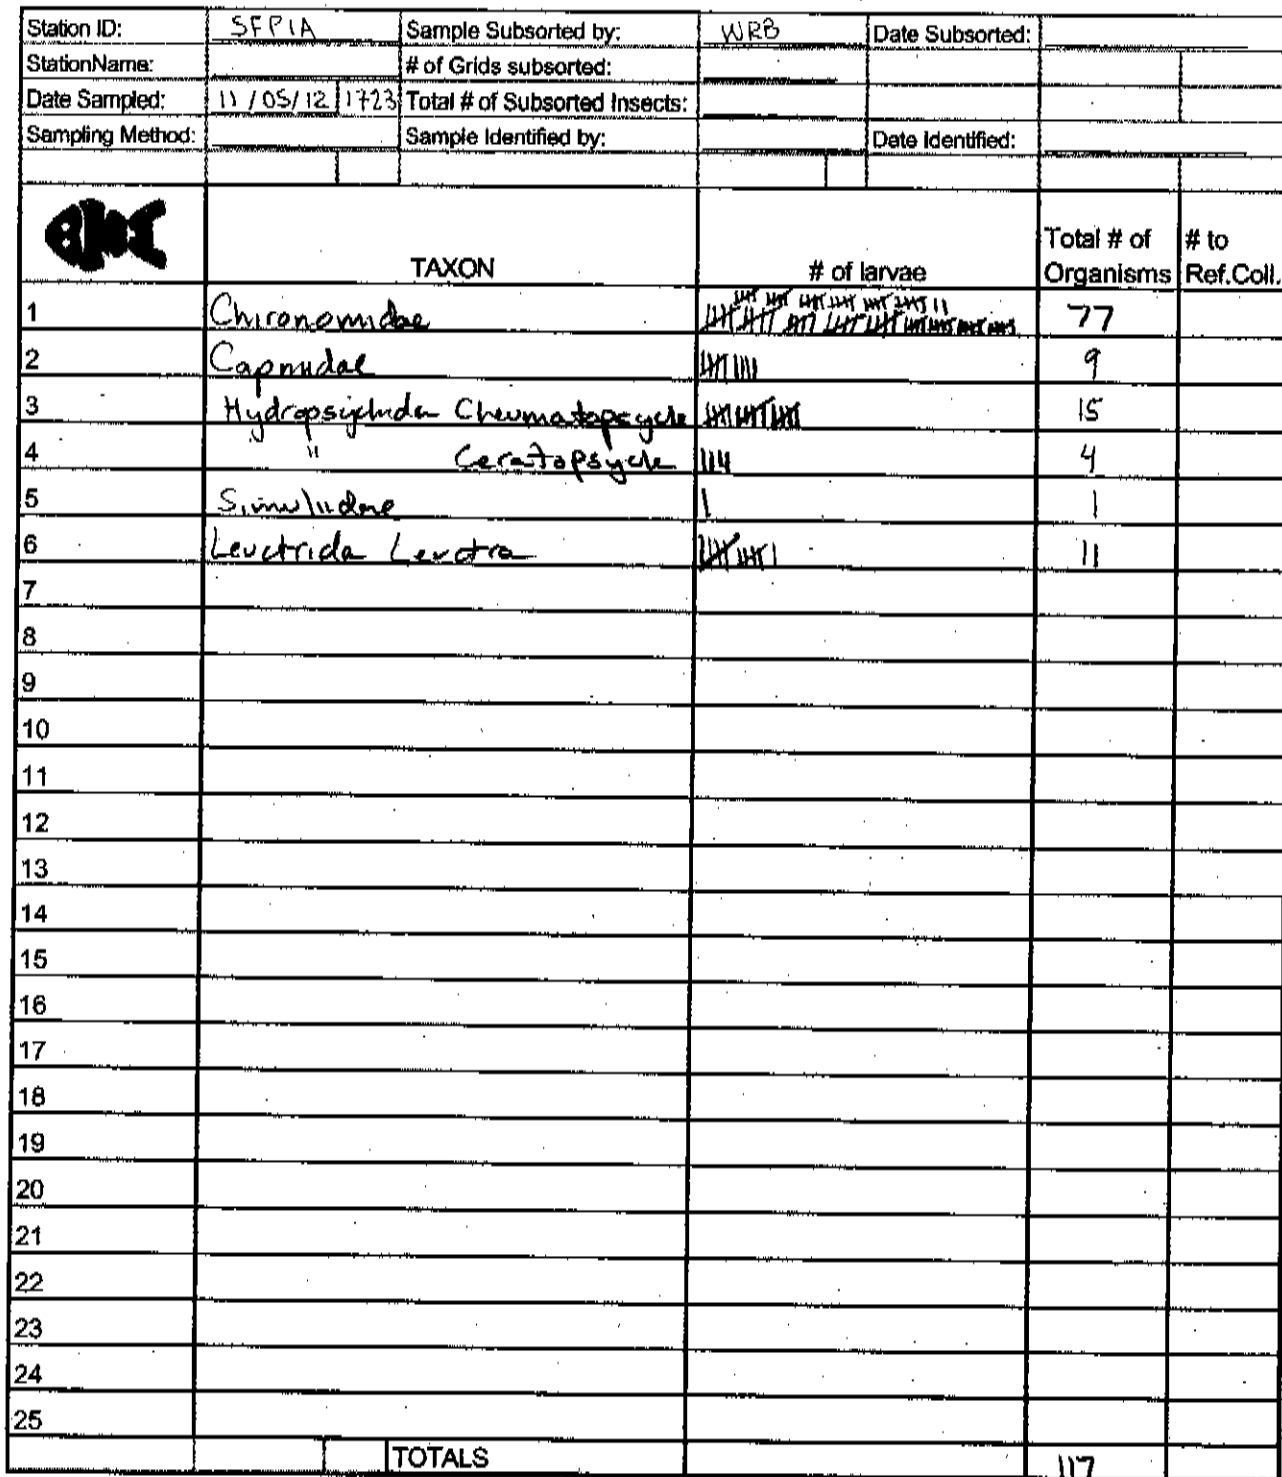 Station ID: SFP1A Sample Subsorted by: WRB Date Subsorted:
StationName: # of Grids subsorted:
Date Sampled: 11/05/12 1723 Total # of Subsorted Insects:
Sampling Method: Sample Identified by: Date Identified:
Total # of # to
TAXON # of larvae Organisms Ref.Coll.
1 Chironomidae 77
2 Capniidae 9
3 Hydropsychidae Cheumatopsyche 15
4 " Ceratopsyche 4
5 Simuliidae 1
6 Leuctrida Leuctra 11
7
8
9
10
11
12
13
14
15
16
17
18
19
20
21
22
23
24
25
TOTALS 117